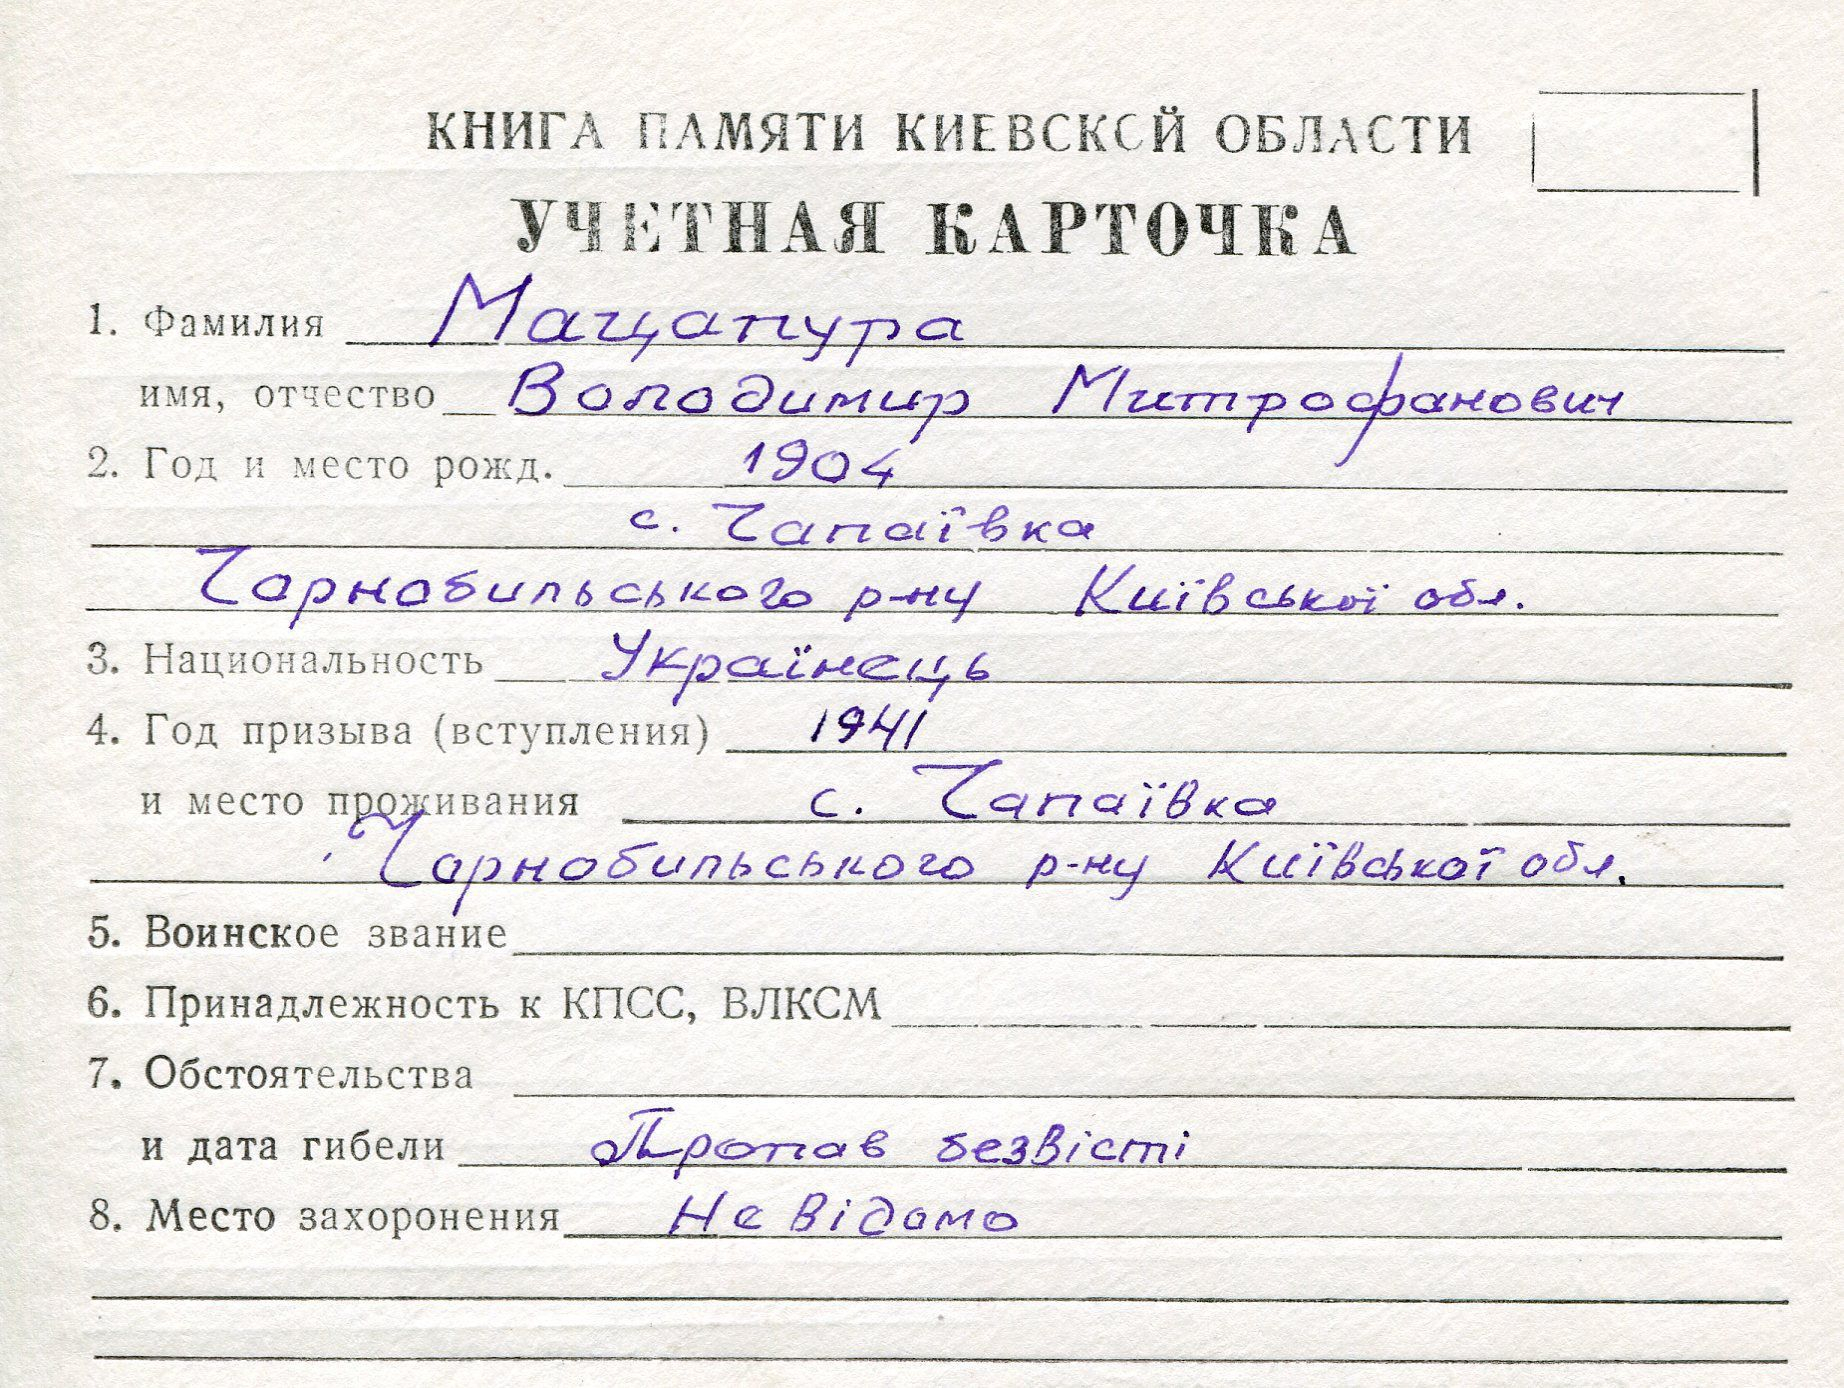 КНИГА ПАМЯТИ КИЕВСКОЙ ОБЛАСТИ
УЧЕТНАЯ КАРТОЧКА
1. Фамилия Мацапура
имя, отчество Володимир Митрофанович
2. Год и место рожд. 1904
с. Чапаївка
Чорнобильського р-ну Київської обл.
3. Национальность Українець
4. Год призыва (вступления) 1941
и место проживания с. Чапаївка
Чорнобильського р-ну Київської обл.
5. Воинское звание
6. Принадлежность к КПСС, ВЛКСМ
7. Обстоятельства
и дата гибели Пропав безвісті
8. Место захоронения Не відомо